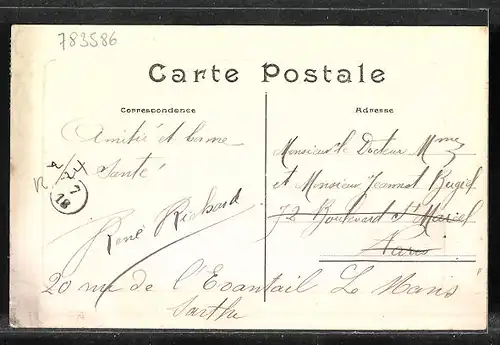 783586
Carte Postale
Correspondence
Adresse
Amitié et bonne
Santé
René Richard
Monsieur le Docteur Mme
et Monsieur Jeannot
72 Boulevard St
Paris
20 rue de l'Eventail Le Mans
Sarthe